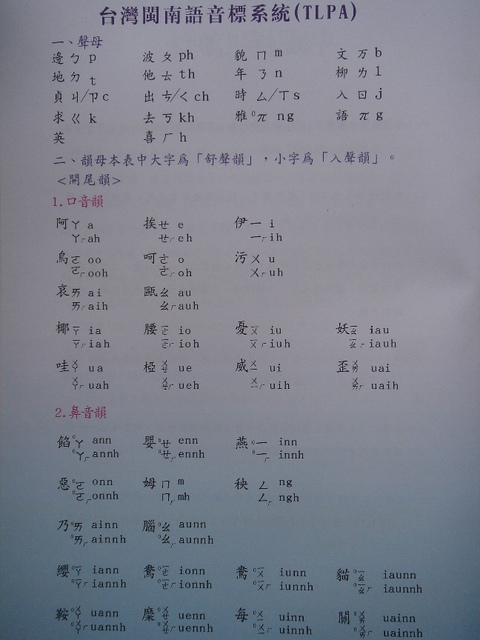 台灣閩南語音標系統(TLPA)
一、聲母
邊ㄅ p 波ㄆ ph 貌ㄇ m 文万 b
地ㄉ t 他ㄊ th 年ㄋ n 柳ㄌ l
貞ㄐ/ㄗ c 出ㄘ/ㄑ ch 時ㄙ/ㄒ s 入ㄖ j
求ㄍ k 去ㄎ kh 雅 ng 語 g
英 喜ㄏ h
二、韻母本表中大字為「舒聲韻」，小字為「入聲韻」。
<開尾韻>
1.口音韻
阿ㄚ a 挨ㄝ e 伊一 i
ㄚㄏ ah ㄝㄏ eh 一ㄏ ih
烏ㄛ oo 呵ㄜ o 污ㄨ u
ㄛㄏ ooh ㄜㄏ oh ㄨㄏ uh
哀ㄞ ai 甌ㄠ au
ㄞㄏ aih ㄠㄏ auh
椰 ia 腰 io 憂 iu 妖 iau
iah ioh iuh iauh
哇 ua 椏 ue 威 ui 歪 uai
uah ueh uih uaih
2.鼻音韻
餡 ann 嬰 enn 燕 inn
annh ennh innh
惡 onn 姆ㄇ m 秧ㄥ ng
onnh ㄇㄏ mh ㄥㄏ ngh
乃 ainn 腦 aunn
ainnh aunnh
纓 iann 鴦 ionn 鴦 iunn 貓 iaunn
iannh ionnh iunnh iaunnh
鞍 uann 糜 uenn 每 uinn 關 uainn
uannh uennh uinnh uainnh